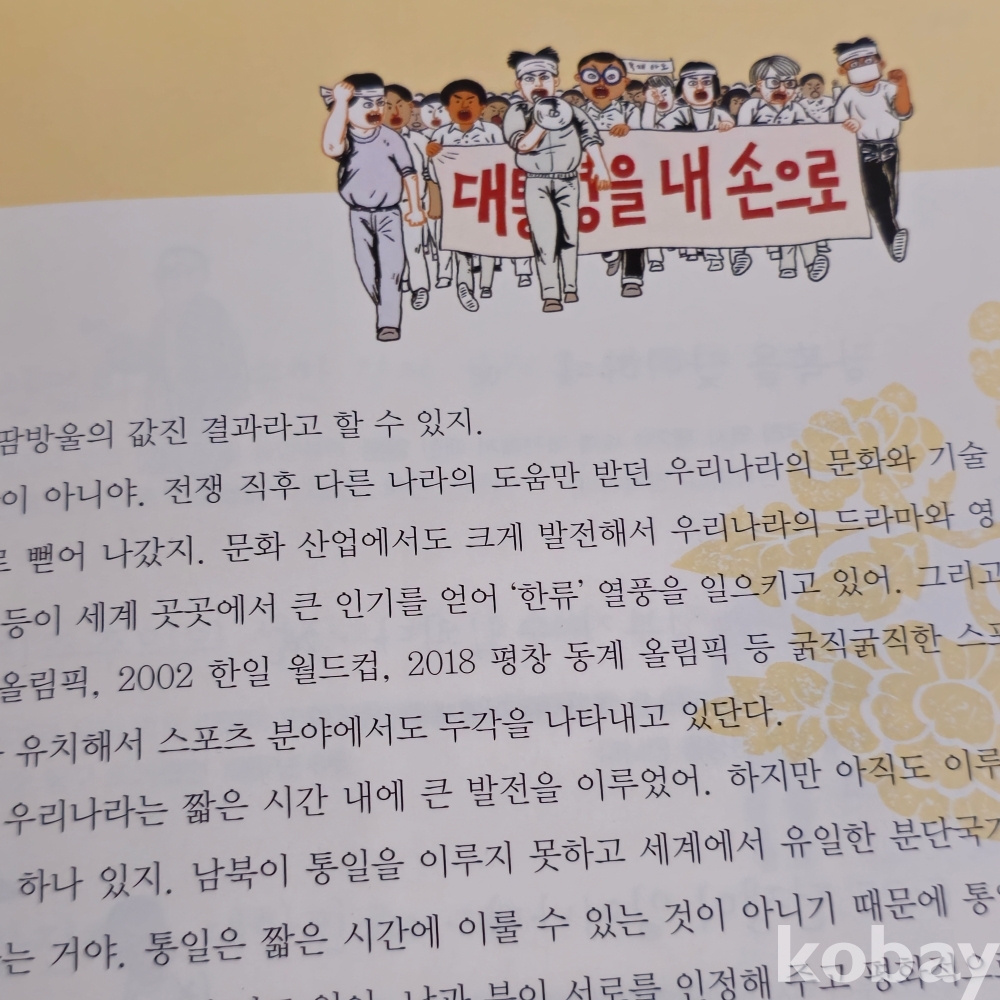 대통령을 내 손으로
땀방울의 값진 결과라고 할 수 있지.
이 아니야. 전쟁 직후 다른 나라의 도움만 받던 우리나라의 문화와 기술
로 뻗어 나갔지. 문화 산업에서도 크게 발전해서 우리나라의 드라마와 영
등이 세계 곳곳에서 큰 인기를 얻어 ‘한류’ 열풍을 일으키고 있어. 그리고
올림픽, 2002 한일 월드컵, 2018 평창 동계 올림픽 등 굵직굵직한 스포
유치해서 스포츠 분야에서도 두각을 나타내고 있단다.
우리나라는 짧은 시간 내에 큰 발전을 이루었어. 하지만 아직도 이루
하나 있지. 남북이 통일을 이루지 못하고 세계에서 유일한 분단국가
는 거야. 통일은 짧은 시간에 이룰 수 있는 것이 아니기 때문에 통일
남과 북이 서로를 인정해 주고 평화적으로
kobay